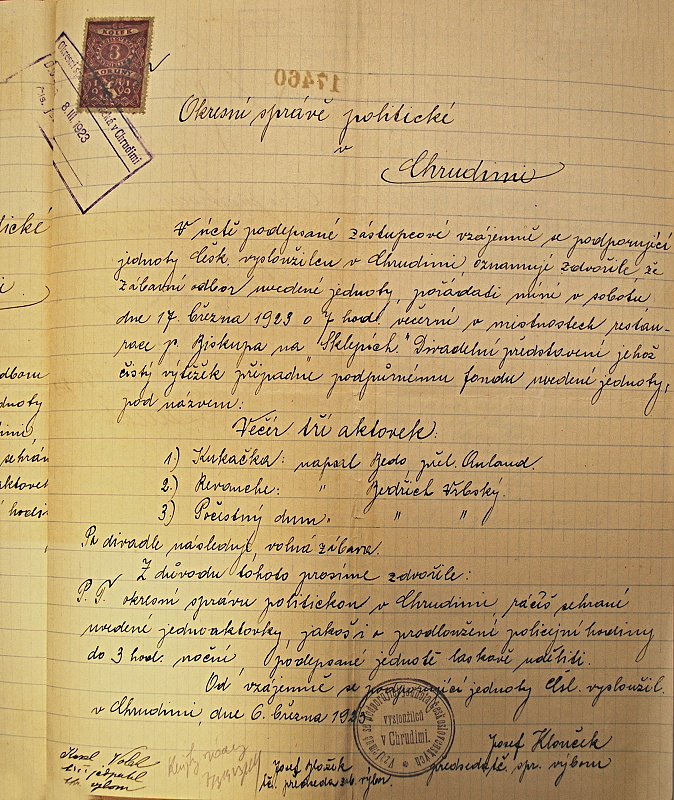 KOLEK
3
KORUNY
Okresní
8. III. 1923
v Chrudimi
17460
Okresní správě politické
v
Chrudimi
V úctě podepsané zástupcové vzájemně se podporující
jednoty Česk. vysloužilců v Chrudimi, oznamují zdvořile, že
zábavní odbor uvedené jednoty, pořádati míní v sobotu
dne 17. března 1923 o 7 hod. večerní v místnostech restau-
race p. Biskupa na "Sklepích." Divadelní představení jehož
čistý výtěžek připadne podpůrnému fondu uvedené jednoty,
pod názvem:
Večer tří aktovek:
1) Kukačka: napsal Bedo přel.
2.) Revanche: " Bedřich Vrbský.
3) Počestný dum. " "
Po divadle následuje volná zábava.
Z důvodu tohoto prosíme zdvořile:
P. T. okresní správu politickou v Chrudimi, ráčíš sehrání
uvedené jednoaktovky, jakož i o prodloužení policejní hodiny
do 3 hod. noční, podepsané jednotě laskavě uděliti.
Od vzájemně se podporující jednoty Čsl. vysloužil.
v Chrudimi, dne 6. března 1923
Vzájemně se podporující jednota československých
vysloužilců
v Chrudimi.
Karel
t.č. jednatel
výbom
Josef
t.č. předseda zab. výbor.
Josef Klouček
předseda t.č. spr. výbom
tické
i.
odboru
jednoty
sehrán
aktovek
hodin